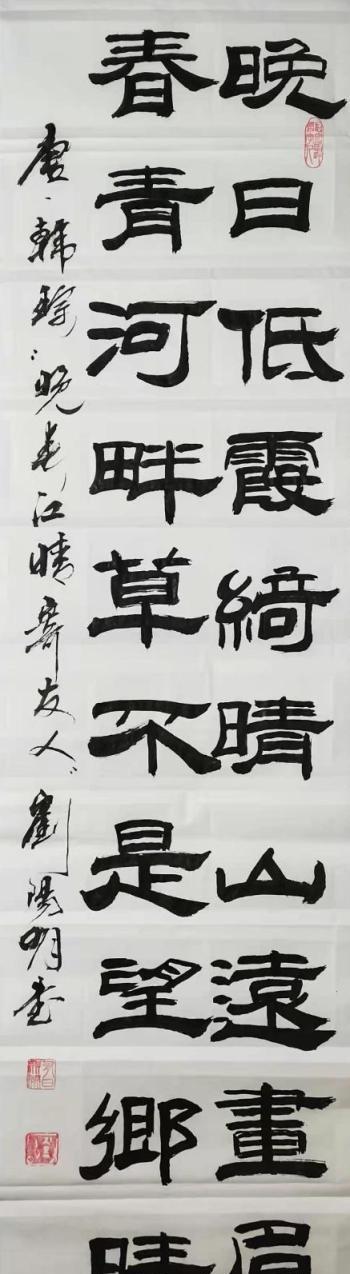 晚日低霞綺晴山遠畫眉
春青河畔草不是望鄉時
唐、韓琮、晚春江晴寄友人。劉陽明書